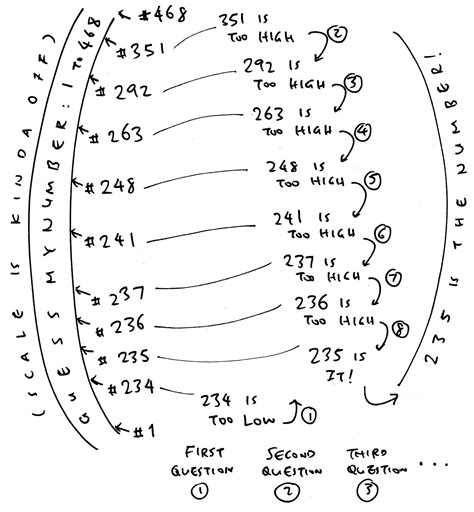 (SCALE IS KINDA OFF)
GUESS MY NUMBER: 1 TO 468
#468
#351
351 IS
TOO HIGH
②
#292
292 IS
TOO HIGH
③
#263
263 IS
TOO HIGH
④
#248
248 IS
TOO HIGH
⑤
#241
241 IS
TOO HIGH
⑥
#237
237 IS
TOO HIGH
⑦
#236
236 IS
TOO HIGH
⑧
#235
235 IS
IT!
#234
234 IS
TOO LOW
①
#1
235 IS THE NUMBER!
FIRST
QUESTION
①
SECOND
QUESTION
②
THIRD
QUESTION
③
...